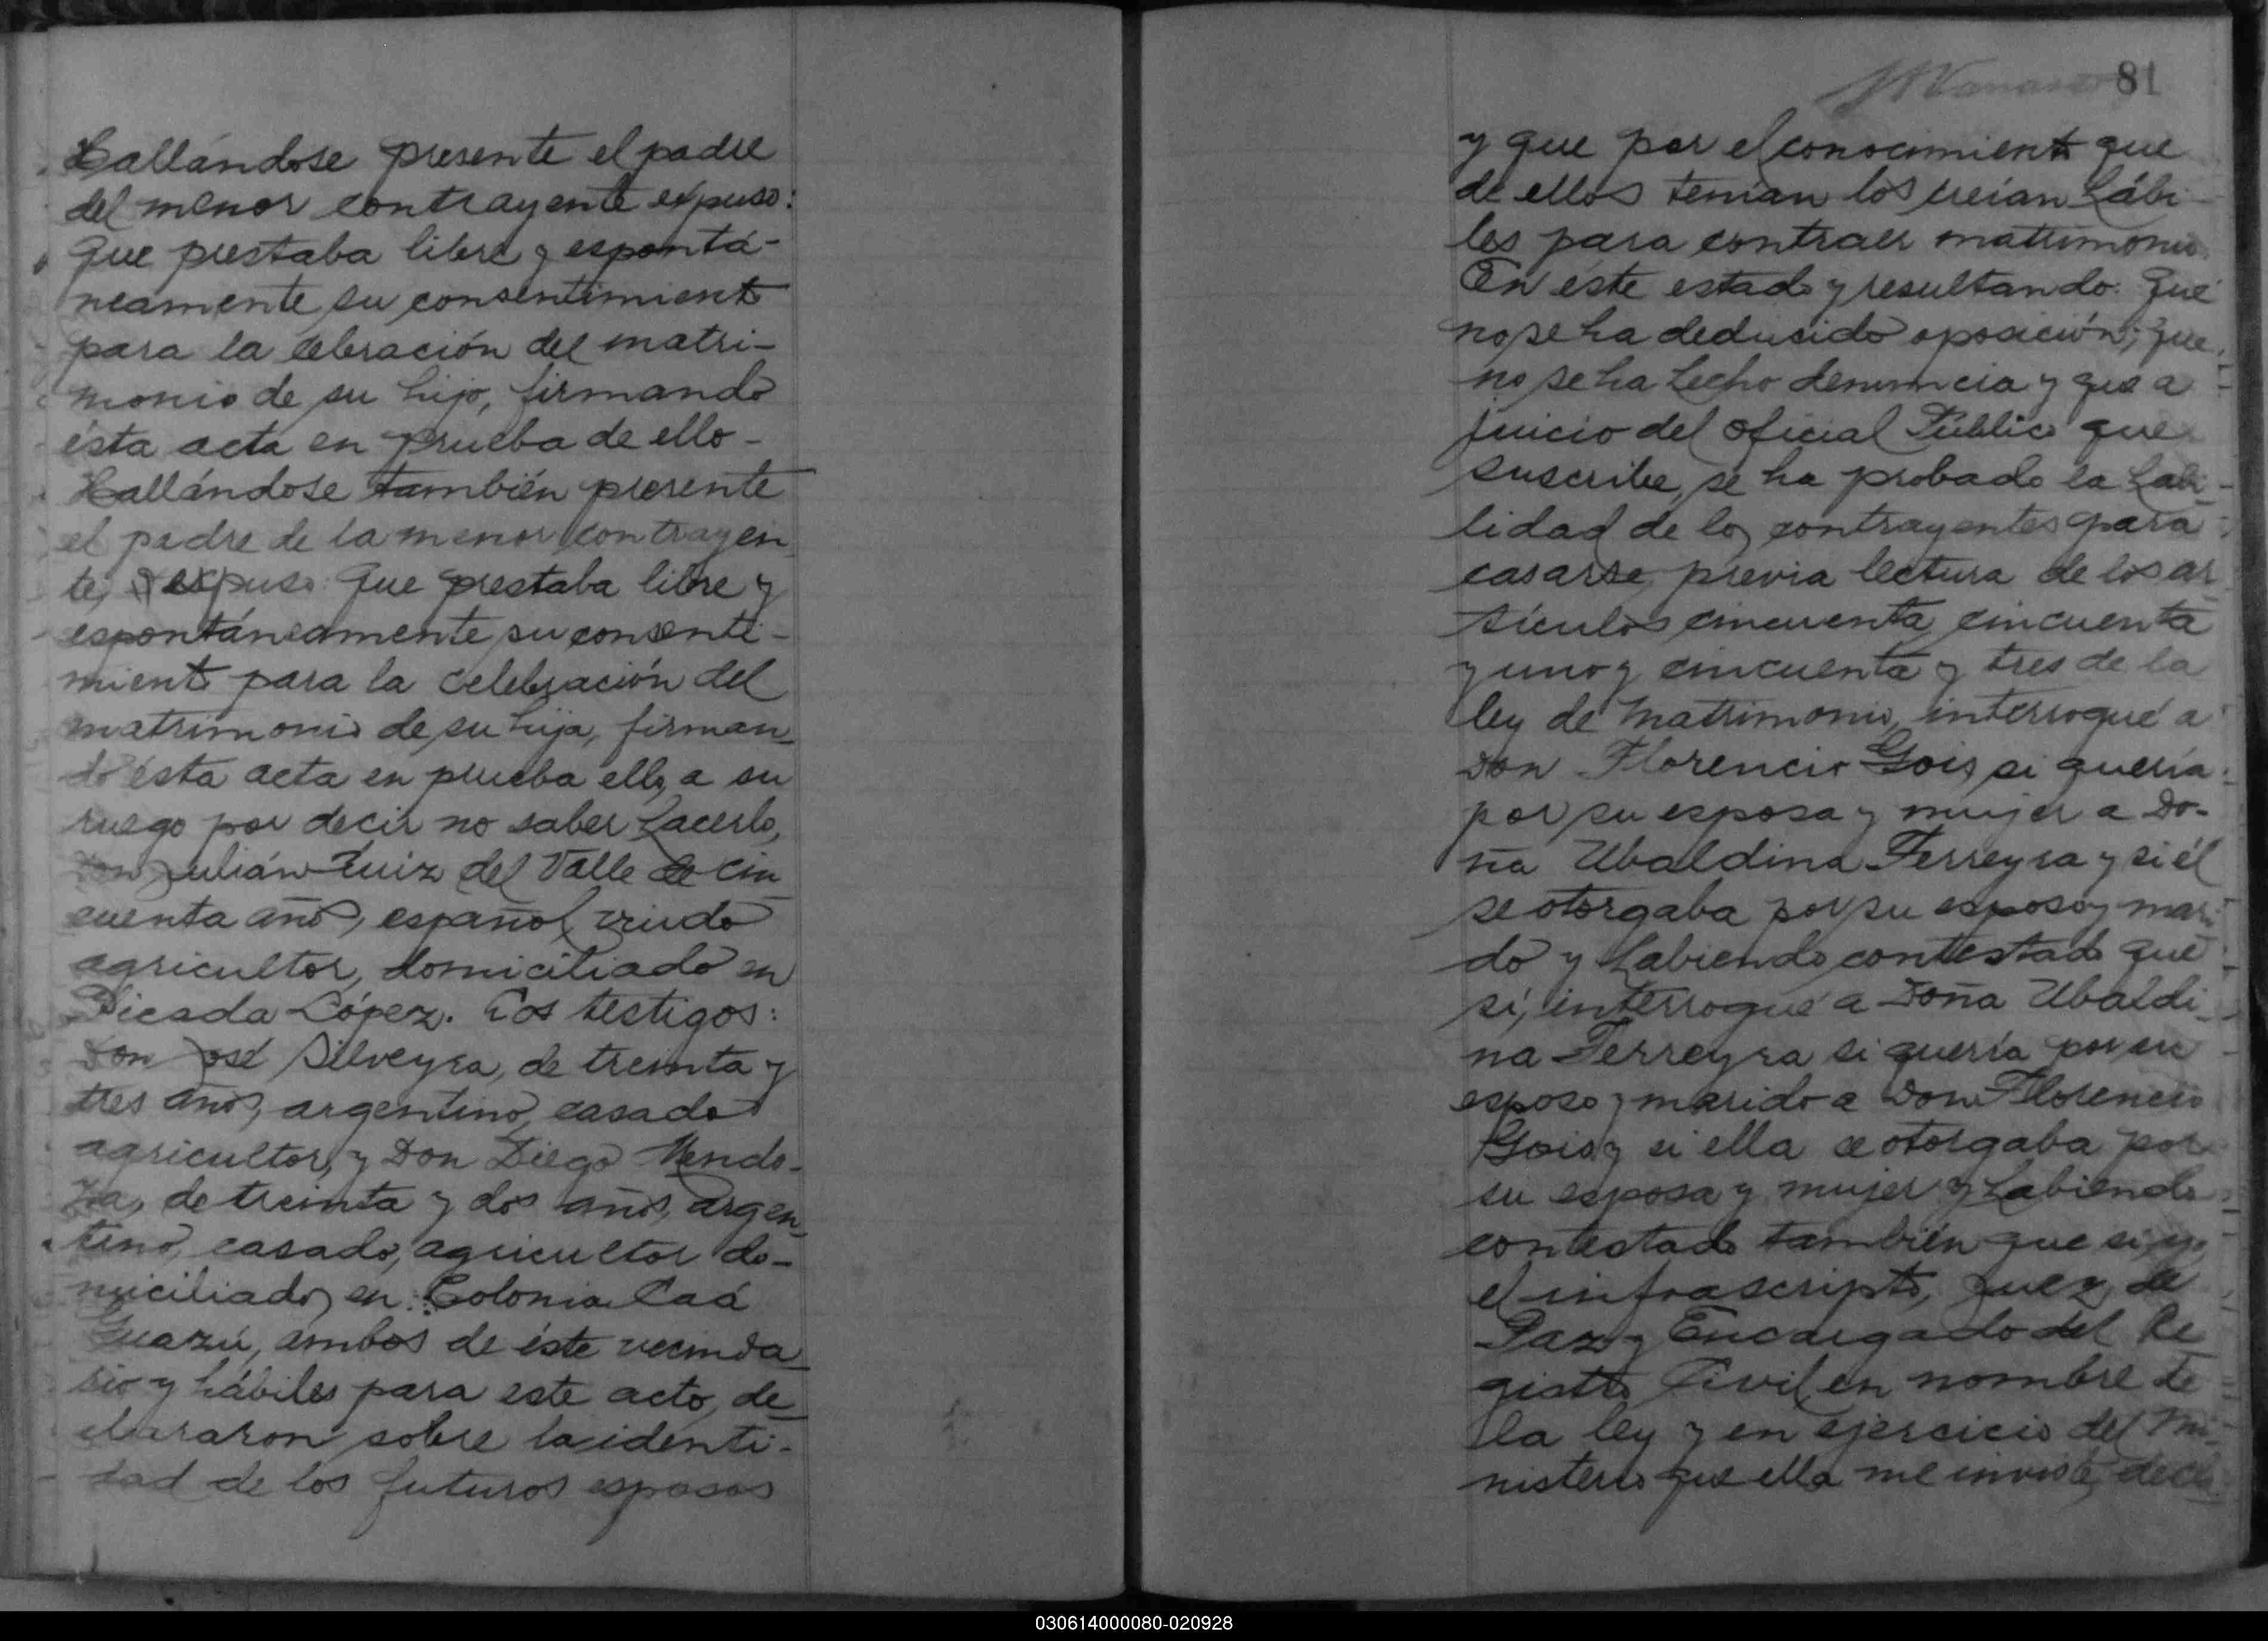 Hallándose presente el padre
del menor contrayente expuso:
Que prestaba libre y espontá-
neamente su consentimiento
para la celebración del matri-
monio de su hijo, firmando
ésta acta en prueba de ello-
Hallándose también presente
el padre de la menor contrayen
te, expuso: Que prestaba libre y
espontáneamente su consenti-
miento para la celebración del
matrimonio de su hija, firman_
do ésta acta en prueba ello, a su
ruego por decir no saber hacerlo,
Don Julián Ruiz del Valle de cin
cuenta años, español, viudo
agricultor, domiciliado en
Picada López. Los testigos:
Don José Silveyra, de treinta y
tres años, argentino, casado
agricultor, y Don Diego Mendo-
za, de treinta y dos años, argen_
tino, casado, agricultor do-
miciliados en: Colonia Caá
Guazú, ambos de éste vecinda_
rio y hábiles para este acto, de_
clararon sobre la identi-
dad de los futuros esposos
81
y que por el conocimiento que
de ellos tenían los creían hábi-
les para contraer matrimonio.
En éste estado y resultando: Que
no se ha deducido oposición; que
no se ha hecho denuncia y que a
juicio del oficial Público que
suscribe, se ha probado la habi-
lidad de los contrayentes para
casarse, previa lectura de los ar
tículos cincuenta, cincuenta
y uno y cincuenta y tres de la
ley de Matrimonio, interrogué a
Don Florencio Gois, si quería
por su esposa y mujer a Do-
ña Ubaldina Ferreyra y si él
se otorgaba por su esposo y mari
do y habiendo contestado que
sí, interrogué a Doña Ubaldi_
na Ferreyra si quería por su
esposo y marido a Don Florencio
Gois y si ella se otorgaba por
su esposa y mujer y habiendo
contestado también que si, yo
el infrascripto, Juez de
Paz y Encargado del Re_
gistro Civil en nombre de
la ley y en ejercicio del Mi_
nisterio que ella me inviste, decla_
030614000080-020928